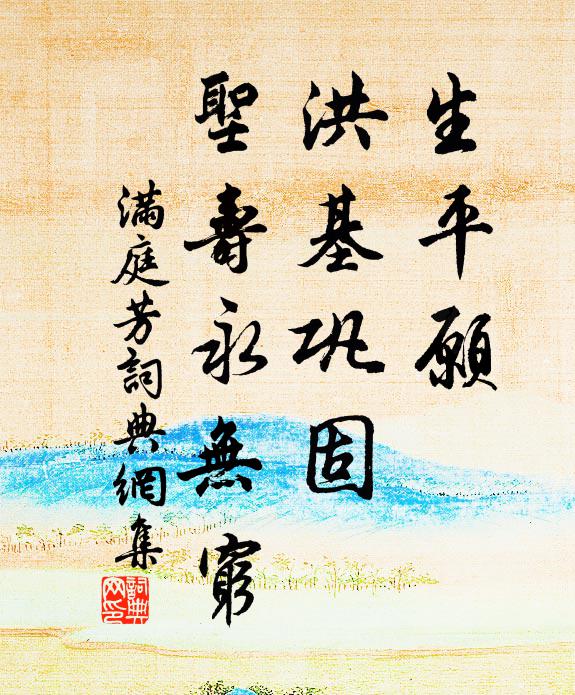 生平願
洪基巩固
聖壽永無窮
滿庭芳詞典網集